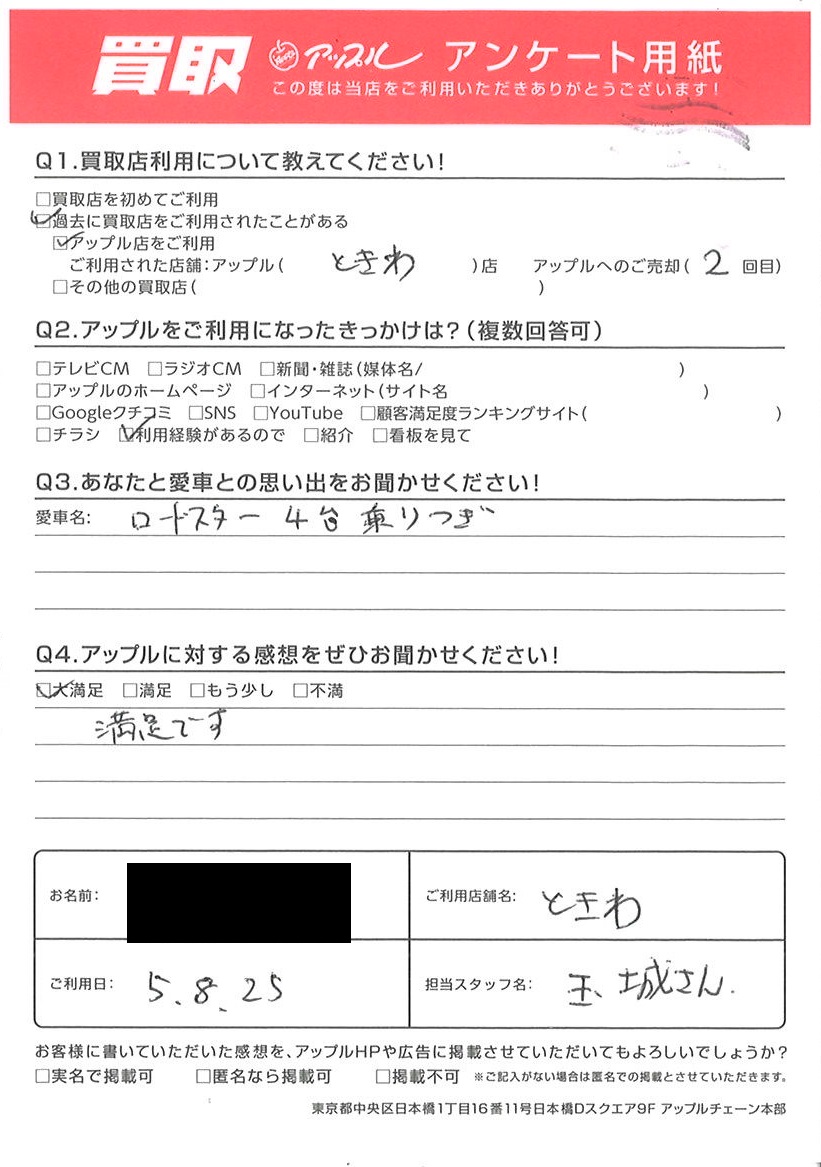 買取 アップル アンケート用紙
この度は当店をご利用いただきありがとうございます!
Q1.買取店利用について教えてください!
□買取店を初めてご利用
☑過去に買取店をご利用されたことがある
☑アップル店をご利用
ご利用された店舗:アップル( ときわ )店 アップルへのご売却( 2 回目)
□その他の買取店( )
Q2.アップルをご利用になったきっかけは?(複数回答可)
□テレビCM □ラジオCM □新聞・雑誌(媒体名/ )
□アップルのホームページ □インターネット(サイト名 )
□Googleクチコミ □SNS □YouTube □顧客満足度ランキングサイト( )
□チラシ ☑利用経験があるので □紹介 □看板を見て
Q3.あなたと愛車との思い出をお聞かせください!
愛車名: ロードスター 4台 乗りつぎ
Q4.アップルに対する感想をぜひお聞かせください!
☑大満足 □満足 □もう少し □不満
満足です
お名前: ご利用店舗名: ときわ
ご利用日: 5.8.25 担当スタッフ名: 玉城さん.
お客様に書いていただいた感想を、アップルHPや広告に掲載させていただいてもよろしいでしょうか?
□実名で掲載可 □匿名なら掲載可 □掲載不可 ※ご記入がない場合は匿名での掲載とさせていただきます。
東京都中央区日本橋1丁目16番11号日本橋Dスクエア9F アップルチェーン本部